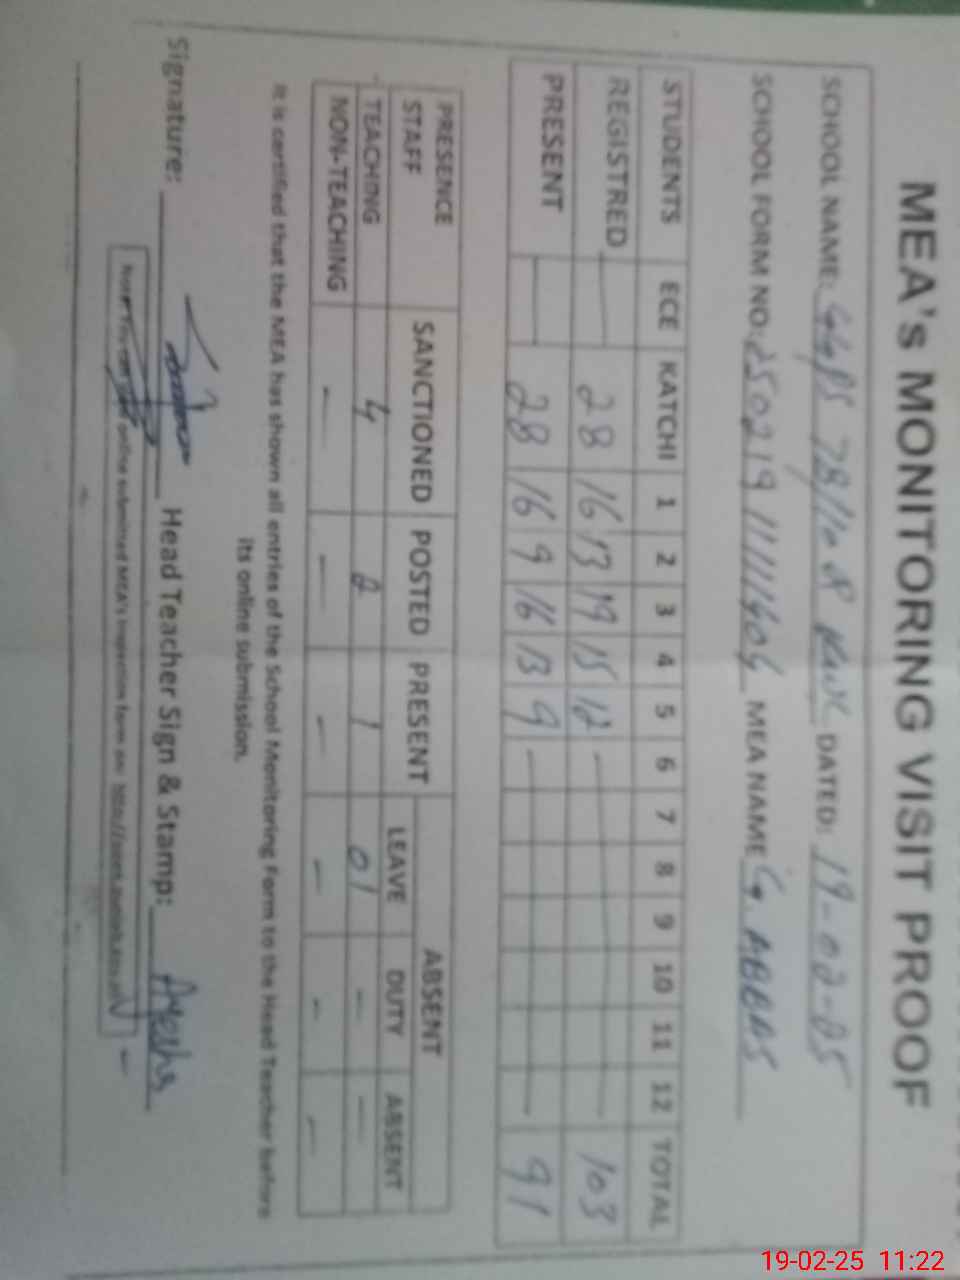 MEA's MONITORING VISIT PROOF
SCHOOL NAME: GGPS 78/10 R KWL DATED: 19-02-25
SCHOOL FORM NO: MEA NAME G. ABBAS
STUDENTS ECE KATCHI 1 2 3 4 5 6 7 8 9 10 11 12 TOTAL
REGISTRED — 28 16 13 19 15 12 — 103
PRESENT — 28 16 9 16 13 9 — 91
PRESENCE STAFF SANCTIONED POSTED PRESENT ABSENT
LEAVE DUTY ABSENT
TEACHING 4 2 1 01 — —
NON-TEACHING — — — — — —
It is certified that the MEA has shown all entries of the School Monitoring Form to the Head Teacher before
its online submission.
Signature: Head Teacher Sign & Stamp: Ayesha
Note: You can online submitted MEA's inspection form on:
19-02-25 11:22